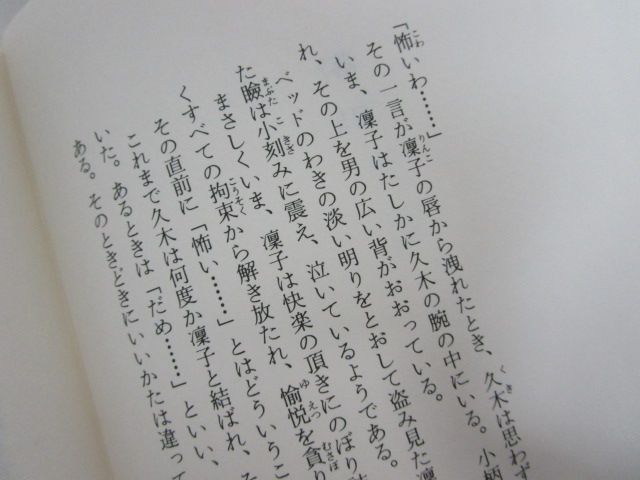 「怖いわ……」
その一言が凛子の唇から洩れたとき、久木は思わず
いま、凛子はたしかに久木の腕の中にいる。小柄
れ、その上を男の広い背がおおっている。
ベッドのわきの淡い明りをとおして盗み見た凛
た瞼は小刻みに震え、泣いているようである。
まさしくいま、凛子は快楽の頂きにのぼり
くすべての拘束から解き放たれ、愉悦を貪り
その直前に「怖い……」とはどういうこ
これまで久木は何度か凛子と結ばれ、そ
いた。あるときは「だめ……」といい、
ある。そのときどきにいいかたは違って